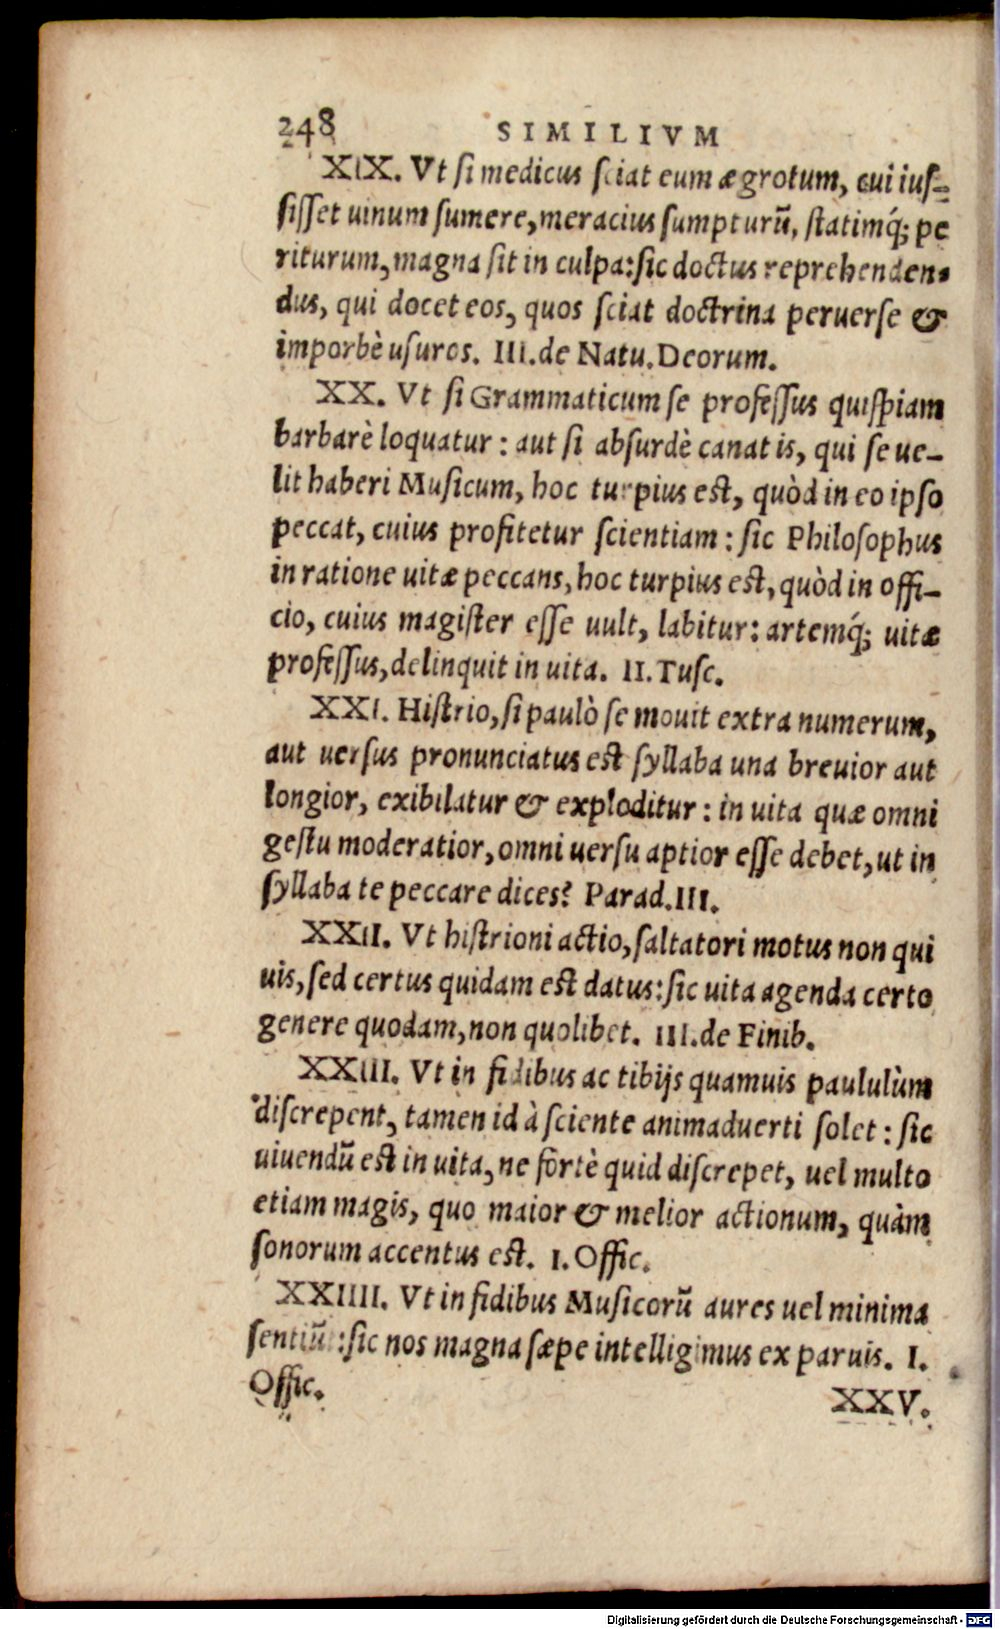 248 SIMILIVM
XIX. Vt si medicus sciat eum ægrotum, cui ius-
sisset uinum sumere, meracius sumpturũ, statimq́; pe
riturum, magna sit in culpa: sic doctus reprehenden-
dus, qui docet eos, quos sciat doctrina peruerse &
imporbè usuros. III. de Natu. Deorum.
XX. Vt si Grammaticum se professus quispiam
barbarè loquatur: aut si absurdè canat is, qui se ue-
lit haberi Musicum, hoc turpius est, quòd in eo ipso
peccat, cuius profitetur scientiam: sic Philosophus
in ratione uitæ peccans, hoc turpius est, quòd in offi-
cio, cuius magister esse uult, labitur: artemq́; uitæ
professus, delinquit in uita. II. Tusc.
XXI. Histrio, si paulò se mouit extra numerum,
aut uersus pronunciatus est syllaba una breuior aut
longior, exibilatur & exploditur: in uita quæ omni
gestu moderatior, omni uersu aptior esse debet, ut in
syllaba te peccare dices? Parad. III.
XXII. Vt histrioni actio, saltatori motus non qui
uis, sed certus quidam est datus: sic uita agenda certo
genere quodam, non quolibet. III. de Finib.
XXIII. Vt in fidibus ac tibijs quamuis paululùm
discrepent, tamen id à sciente animaduerti solet: sic
uiuendũ est in uita, ne fortè quid discrepet, uel multo
etiam magis, quo maior & melior actionum, quàm
sonorum accentus est. I. Offic.
XXIIII. Vt in fidibus Musicorũ aures uel minima
sentiũt: sic nos magna sæpe intelligimus ex paruis. I.
Offic.
XXV.
Digitalisierung gefördert durch die Deutsche Forschungsgemeinschaft - DFG